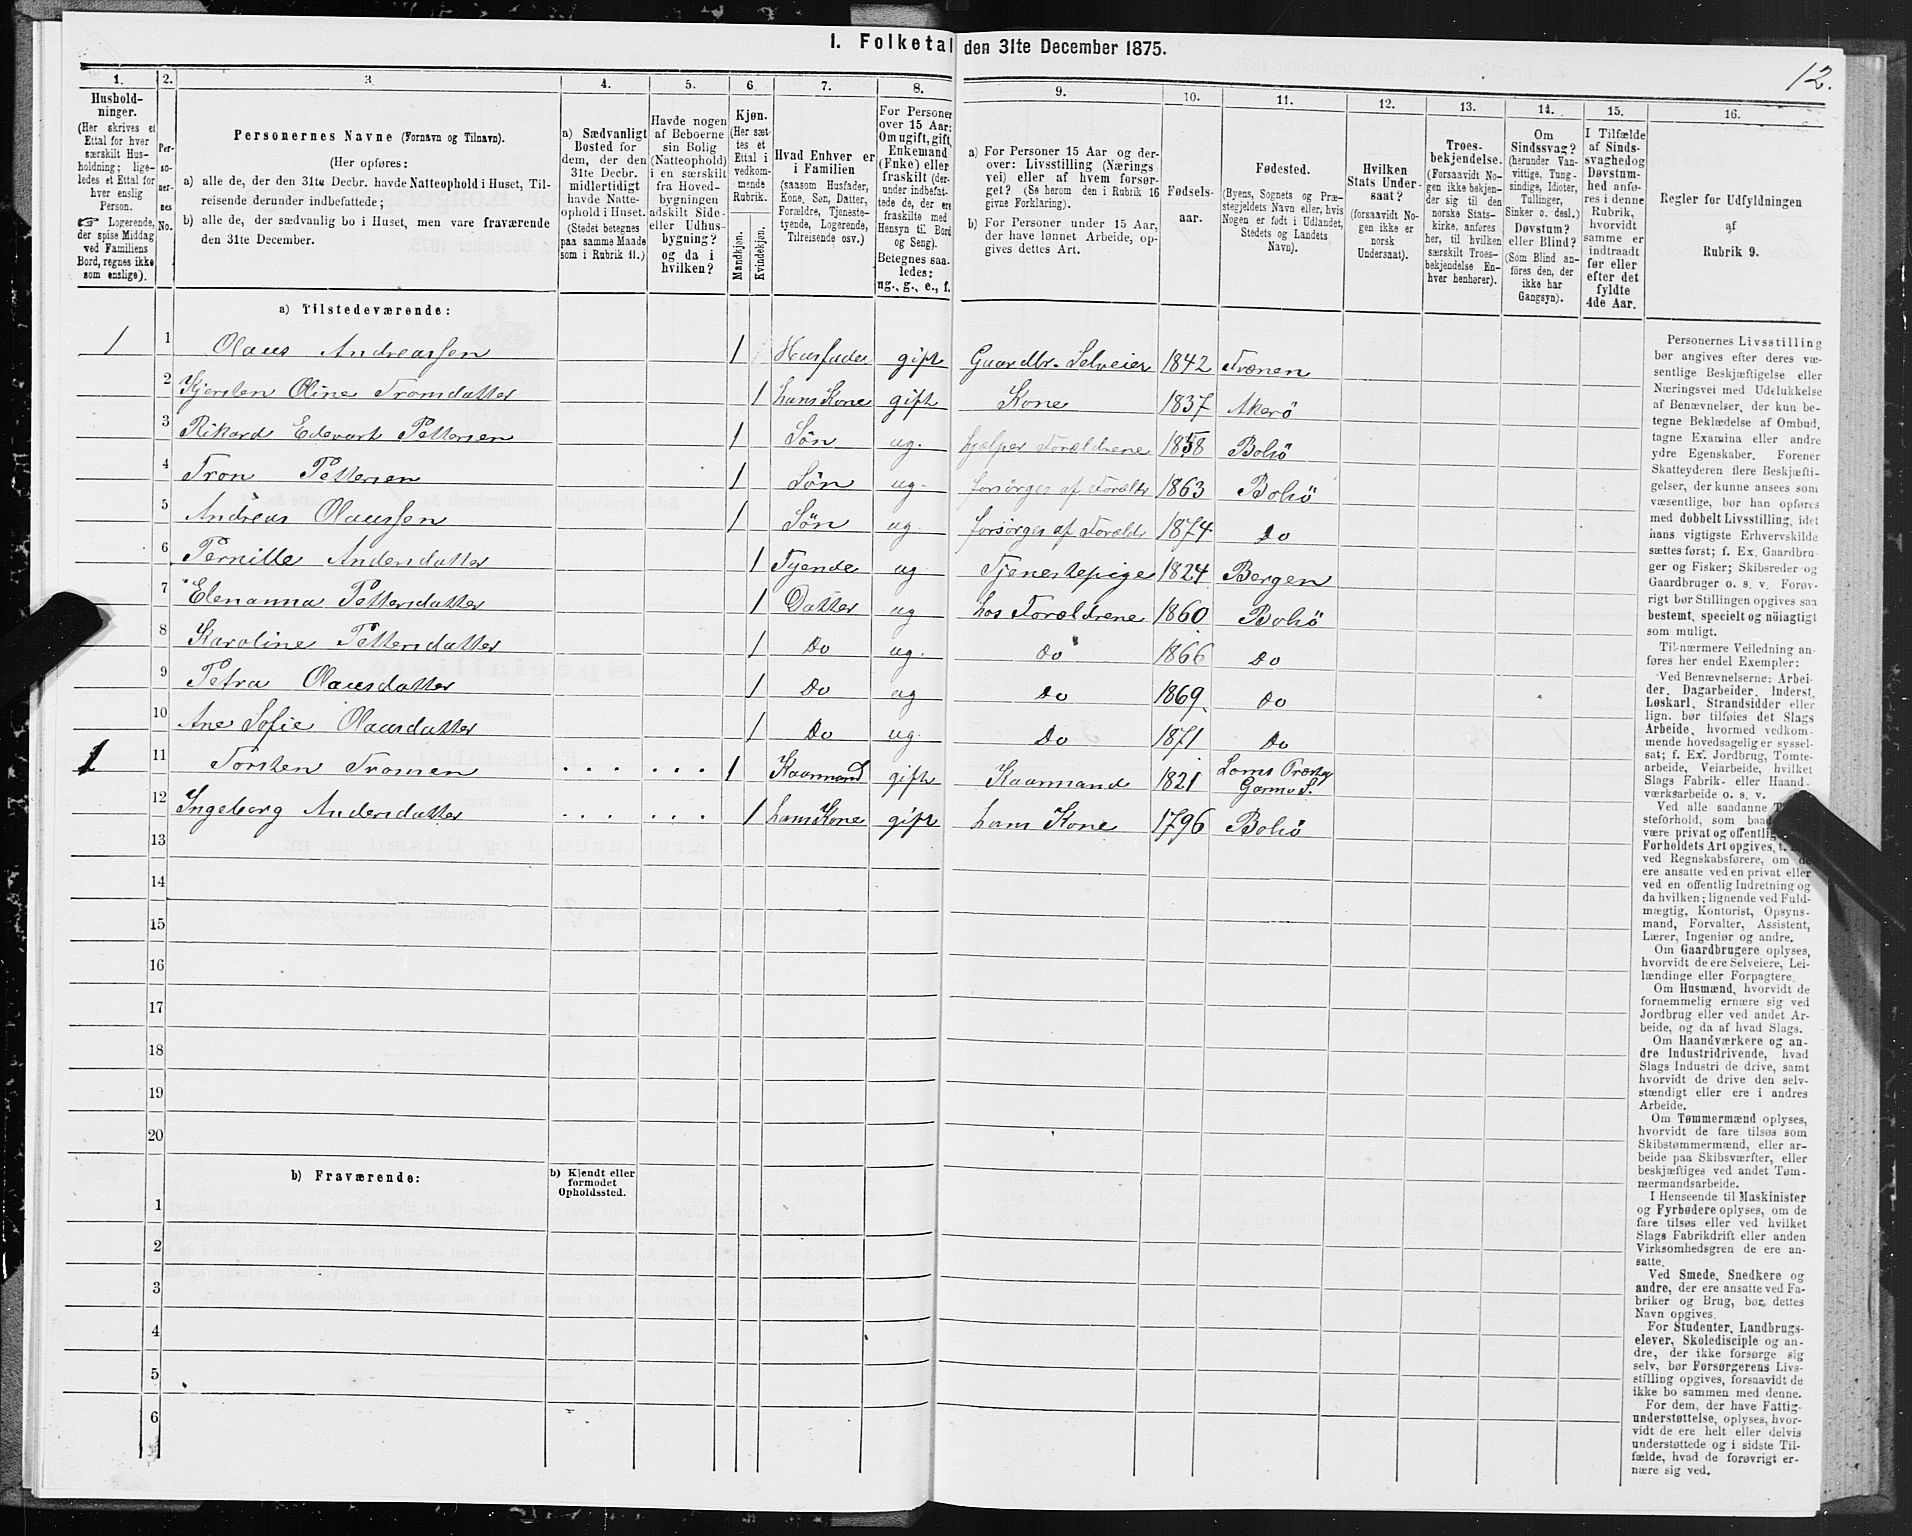 I. Folketal den 31te December 1875.
12.
1.
2.
3.
4.
5.
6.
7.
8.
9.
10.
11.
12.
13.
14.
15.
16.
Hushold-
ninger.
(Her skrives et
Ettal for hver
særskilt Hus-
holdning; lige-
ledes et Ettal for
hver enslig
Person.
☞ Logerende,
der spise Middag
ved Familiens
Bord, regnes ikke
som enslige).
Per-
soner-
nes
No.
Personernes Navne (Fornavn og Tilnavn).
(Her opføres:
a) alle de, der den 31te Decbr. havde Natteophold i Huset, Til-
reisende derunder indbefattede;
b) alle de, der sædvanlig bo i Huset, men vare fraværende
den 31te December.
a) Sædvanligt
Bosted for
dem, der den
31te Decbr.
midlertidigt
havde Natte-
ophold i Huset.
(Stedet betegnes
paa samme Maade
som i Rubrik 11.)
Havde nogen
af Beboerne
sin Bolig
(Natteophold)
i en særskilt
fra Hoved-
bygningen
adskilt Side-
eller Udhus-
bygning?
og da i
hvilken?
Kjøn.
(Her sæt-
tes et
Ettal i
vedkom-
mende
Rubrik.
Mandkjøn.
Kvindekjøn.
Hvad Enhver er
i Familien
(saasom Husfader,
Kone, Søn, Datter,
Forældre, Tjeneste-
tyende, Logerende,
Tilreisende osv.)
For Personer
over 15 Aar:
Om ugift, gift,
Enkemand
(Enke) eller
fraskilt (der-
under indbefat-
tede de, der ere
fraskilte med
Hensyn til Bord
og Seng).
Betegnes saa-
ledes:
ug., g., e., f.
a) For Personer 15 Aar og der-
over: Livsstilling (Nærings
vei) eller af hvem forsør-
get? (Se herom den i Rubrik 16
givne Forklaring).
b) For Personer under 15 Aar,
der have lønnet Arbeide, op-
gives dettes Art.
Fødsels-
aar.
Fødested.
(Byens, Sognets og Præ-
stegjeldets Navn eller, hvis
Nogen er født i Udlandet,
Stedets og Landets
Navn).
Hvilken
Stats Under-
saat?
(forsaavidt No-
gen ikke er
norsk
Undersaat).
Troes-
bekjendelse.
(Forsaavidt No-
gen ikke bekjen-
der sig til den
norske Stats-
kirke, anføres
her, til hvilken
særskilt Troes-
bekjendelse En-
hver henhører).
Om
Sindssvag?
(herunder Van-
vittige, Tung-
sindige, Idioter,
Tullinger,
Sinker o. desl.)
Døvstum?
eller Blind?
(Som Blind an-
føres den, der
ikke har
Gangsyn).
I Tilfælde
af Sinds-
svaghed og
Døvstum-
hed anfø-
res i denne
Rubrik,
hvorvidt
samme er
indtraadt
før eller
efter det
fyldte
4de Aar.
Regler for Udfyldningen
af
Rubrik 9.
a) Tilstedeværende:
1 1 Olaus Andreassen 1 Husfader gift Gaardbr. Selveier 1842 Trænen
2 Kjersten Oline Tronsdatter 1 hans Kone gift Kone 1837 Akerö
3 Rikard Edevart Pettersen 1 Sön ug. hjelper Foreldrene 1858 Bolsö
4 Tron Pettersen 1 Sön ug. forsörges af Foreldr 1863 Bolsö
5 Andreas Olaussen 1 Sön ug. forsörges af Foreldr 1874 Do
6 Pernille Andersdatter 1 Tyende ug Tjenestepige 1824 Bergen
7 Elenanna Pettersdatter 1 Datter ug hos Foreldrene 1860 Bolsö
8 Karoline Pettersdatter 1 Do ug. Do 1866 Do
9 Petra Olausdatter 1 Do ug Do 1869 Do
10 Ane Sofie Olausdatter 1 Do ug. Do 1871 Do
1 11 Torsten Tronsen . . . . . . 1 Kaarmand gift Kaarmand 1821 Loms Præstg Garmo S.
12 Ingeborg Andersdatter . . . . . . 1 hans Kone gift hans Kone 1796 Bolsö
13
14
15
16
17
18
19
20
b) Fraværende:
b) Kjendt eller
formodet
Opholdssted.
1
2
3
4
5
6
Personernes Livsstilling
bør angives efter deres væ-
sentlige Beskjæftigelse eller
Næringsvei med Udelukkelse
af Benævnelser, der kun be-
tegne Beklædelse af Ombud,
tagne Examina eller andre
ydre Egenskaber. Forener
Skatteyderen flere Beskjæfti-
gelser, der kunne ansees som
væsentlige, bør han opføres
med dobbelt Livsstilling, idet
hans vigtigste Erhvervskilde
sættes først; f. Ex. Gaardbru-
ger og Fisker; Skibsreder og
Gaardbruger o. s. v. Forøv-
rigt bør Stillingen opgives saa
bestemt, specielt og nöiagtigt
som muligt.
Til nærmere Veiledning an-
føres her endel Exempler:
Ved Benævnelserne: Arbei-
der, Dagarbeider, Inderst,
Løskarl, Strandsidder eller
lign. bør tilføies det Slags
Arbeide, hvormed vedkom-
mende hovedsagelig er syssel-
sat; f. Ex. Jordbrug, Tomte-
arbeide, Veiarbeide, hvilket
Slags Fabrik- eller Haand-
værksarbeide o. s. v.
Ved alle saadanne
steforhold, som
være privat og offentlig,
Forholdets Art opgives,
ved Regnskabsførere, om de
ere ansatte ved en privat eller
ved en offentlig Indretning og
da hvilken; lignende ved Fuld-
mægtig, Kontorist, Opsyns-
mand, Forvalter, Assistent,
Lærer, Ingeniør og andre.
Om Gaardbrugere oplyses,
hvorvidt de ere Selveiere, Lei-
lændinge eller Forpagtere.
Om Husmænd, hvorvidt de
fornemmelig ernære sig ved
Jordbrug eller ved andet Ar-
beide, og da af hvad Slags.
Om Haandværkere og an-
dre Industridrivende, hvad
Slags Industri de drive, samt
hvorvidt de drive den selv-
stændigt eller ere i andres
Arbeide.
Om Tømmermænd oplyses,
hvorvidt de fare tilsøs som
Skibstømmermænd, eller ar-
beide paa Skibsværfter, eller
beskjæftiges ved andet Tøm-
mermandsarbeide.
I Henseende til Maskinister
og Fyrbødere oplyses, om de
fare tilsøs eller ved hvilket
Slags Fabrikdrift eller anden
Virksomhedsgren de ere an-
satte.
Ved Smede, Snedkere og
andre, der ere ansatte ved Fa-
briker og Brug, bør dettes
Navn opgives.
For Studenter, Landbrugs-
elever, Skoledisciple og an-
dre, der ikke forsørge sig
selv, bør Forsørgerens Livs-
stilling opgives, forsaavidt de
ikke bo sammen med denne.
For dem, der have Fattig-
understøttelse, oplyses, hvor-
vidt de ere helt eller delvis
understøttede og i sidste Til-
fælde, hvad de forøvrigt er-
nære sig ved.